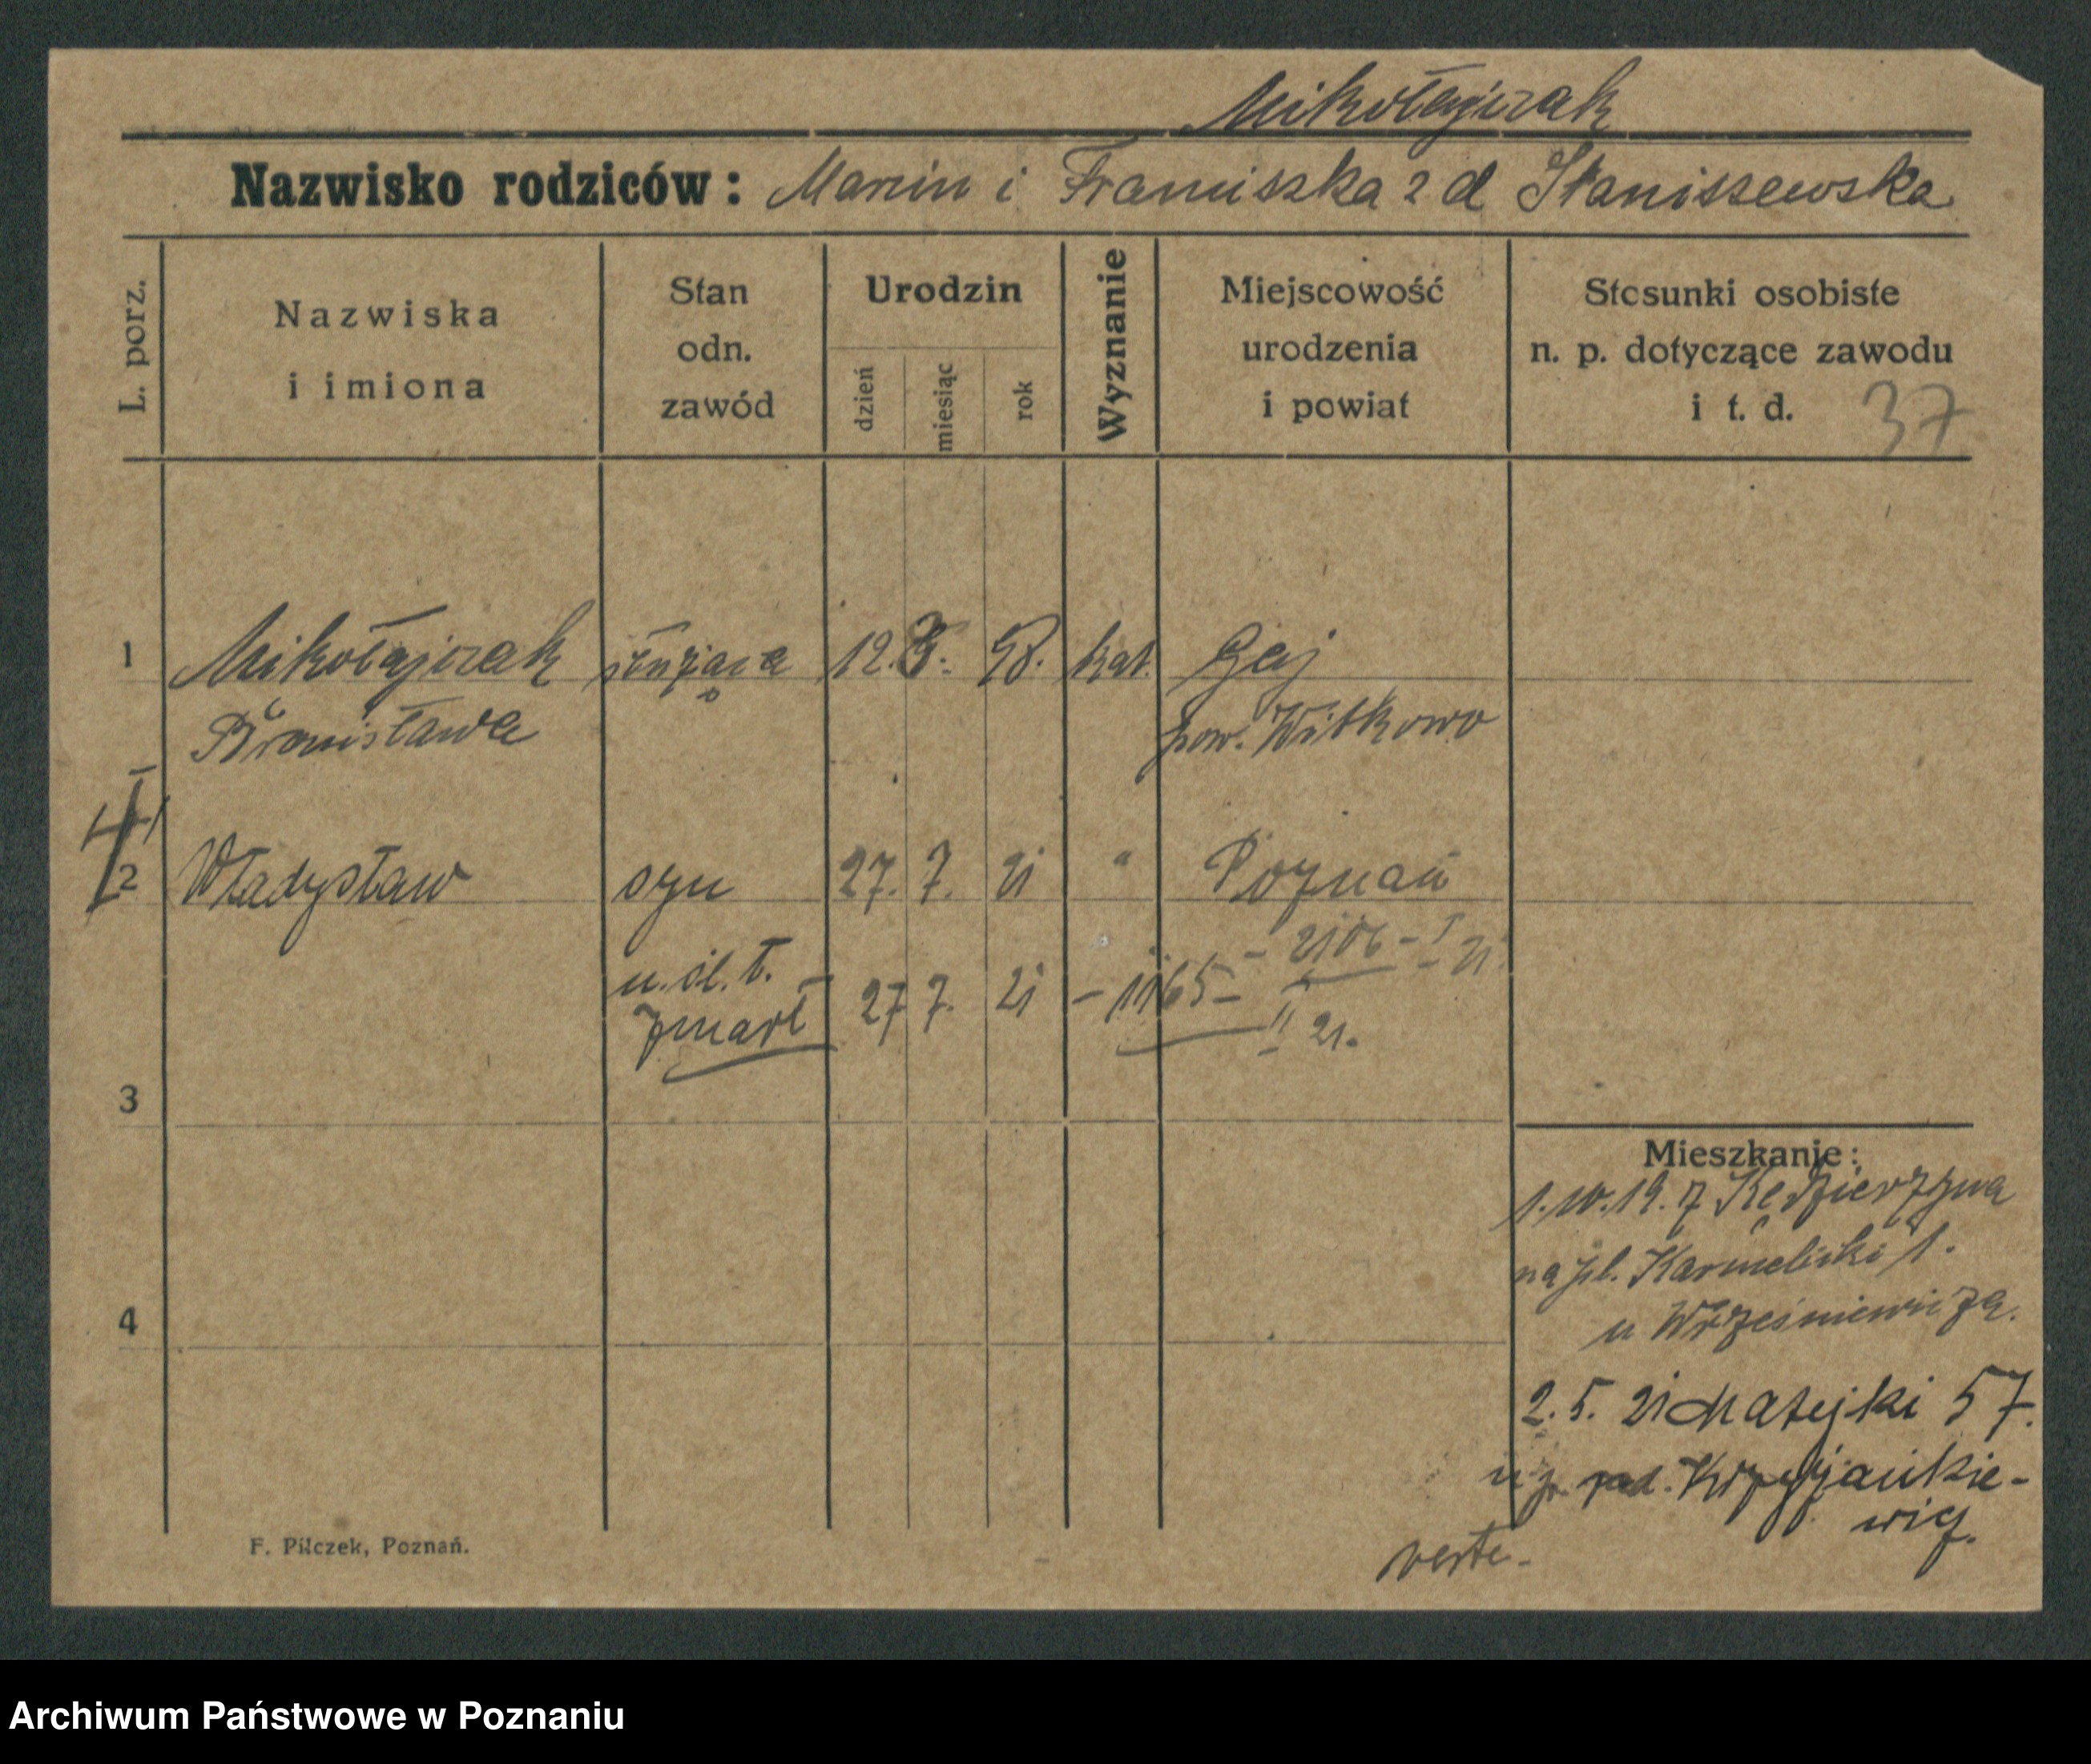 Mikołajczak
Nazwisko rodziców: Marcin i Franciszka z d Staniszewska
L. porz.
Nazwiska
i imiona
Stan
odn.
zawód
Urodzin
dzień
miesiąc
rok
Wyznanie
Miejscowość
urodzenia
i powiat
Stosunki osobiste
n. p. dotyczące zawodu
i t. d. 37
1 Mikołajczak służąca 12. 8. 98. kat. Gaj
Bronisława pow. Witkowo
2 Władysław syn 27. 7. 21 " Poznań
- 2106 - I 21
u. śl. T. -
zmarł 27 7. 21 - 1165 -
II 21.
3
Mieszkanie:
1. 10. 19. z Kędzierzyna
na pl. Karmelicki 1.
u Wrześniewicza.
4
2. 5. 21 Matejki 57.
u p. rad. Krzyżankie-
wicz.
verte -
F. Pilczek, Poznań.
Archiwum Państwowe w Poznaniu